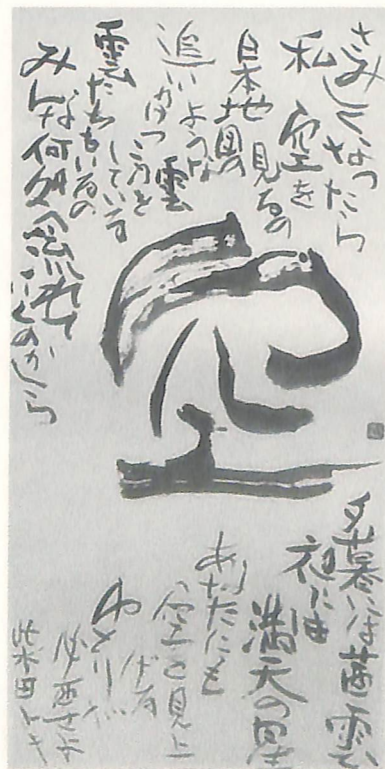 さみしくなったら
私 空を
見るの
日本地図の
ような 雲
追いかけっこを
している
雲たちもいるの
みんな何処へ流れて
いくのかしら
空
夕暮には茜雲
夜には
満天の星
あなたにも
空を見上
げる
ゆとりが
必要よ
柴田トヨ